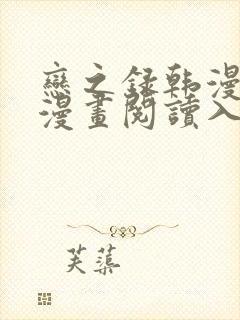 戀之録韩漫
漫畫閱讀入
芙蕖